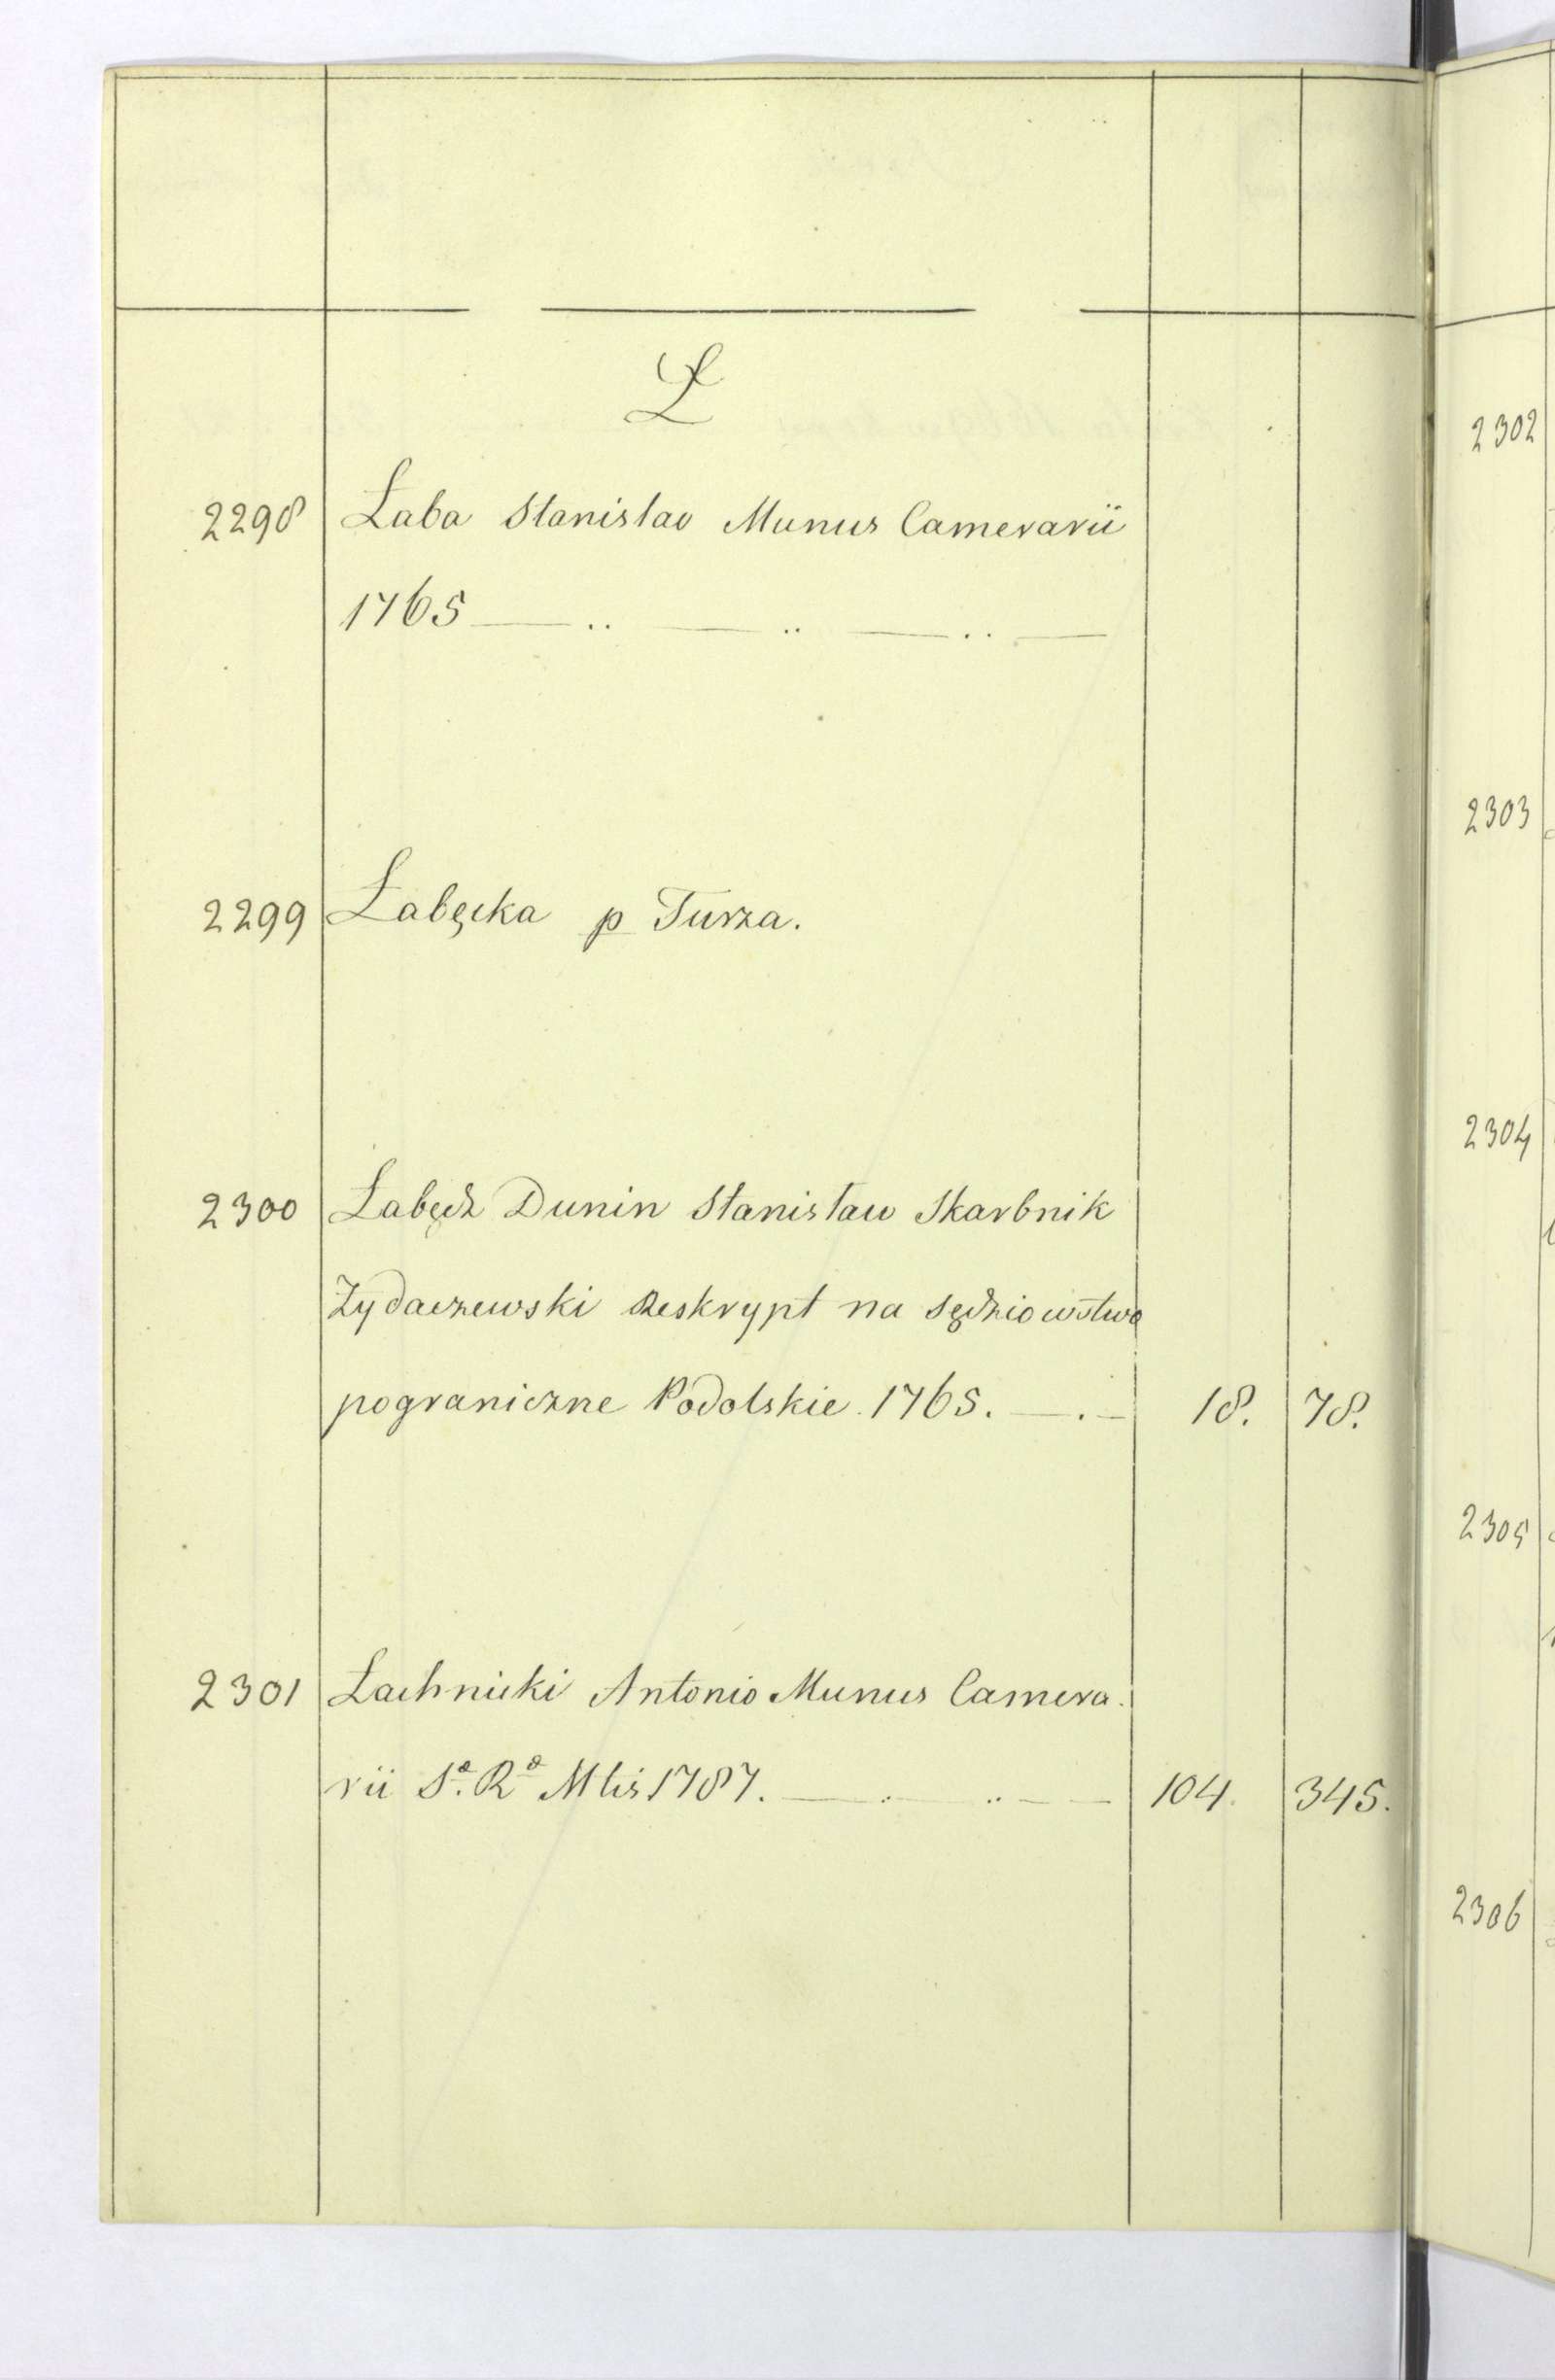 Ł
2298 Łaba Stanislao Munus Camerarii
1765 — .. — .. — .. —
2299 Łabęcka p Turza.
2300 Łabędz Dunin Stanisław Skarbnik
Zydaczewski Reskrypt na sędziowstwo
pograniczne Podolskie 1765. — . — 18. 78.
2301 Łachnicki Antonio Munus Camera.
rii Sæ. Ræ Mtis 1787. — .. — .. — — 104. 345.
2302
2303
2304
2305
2306